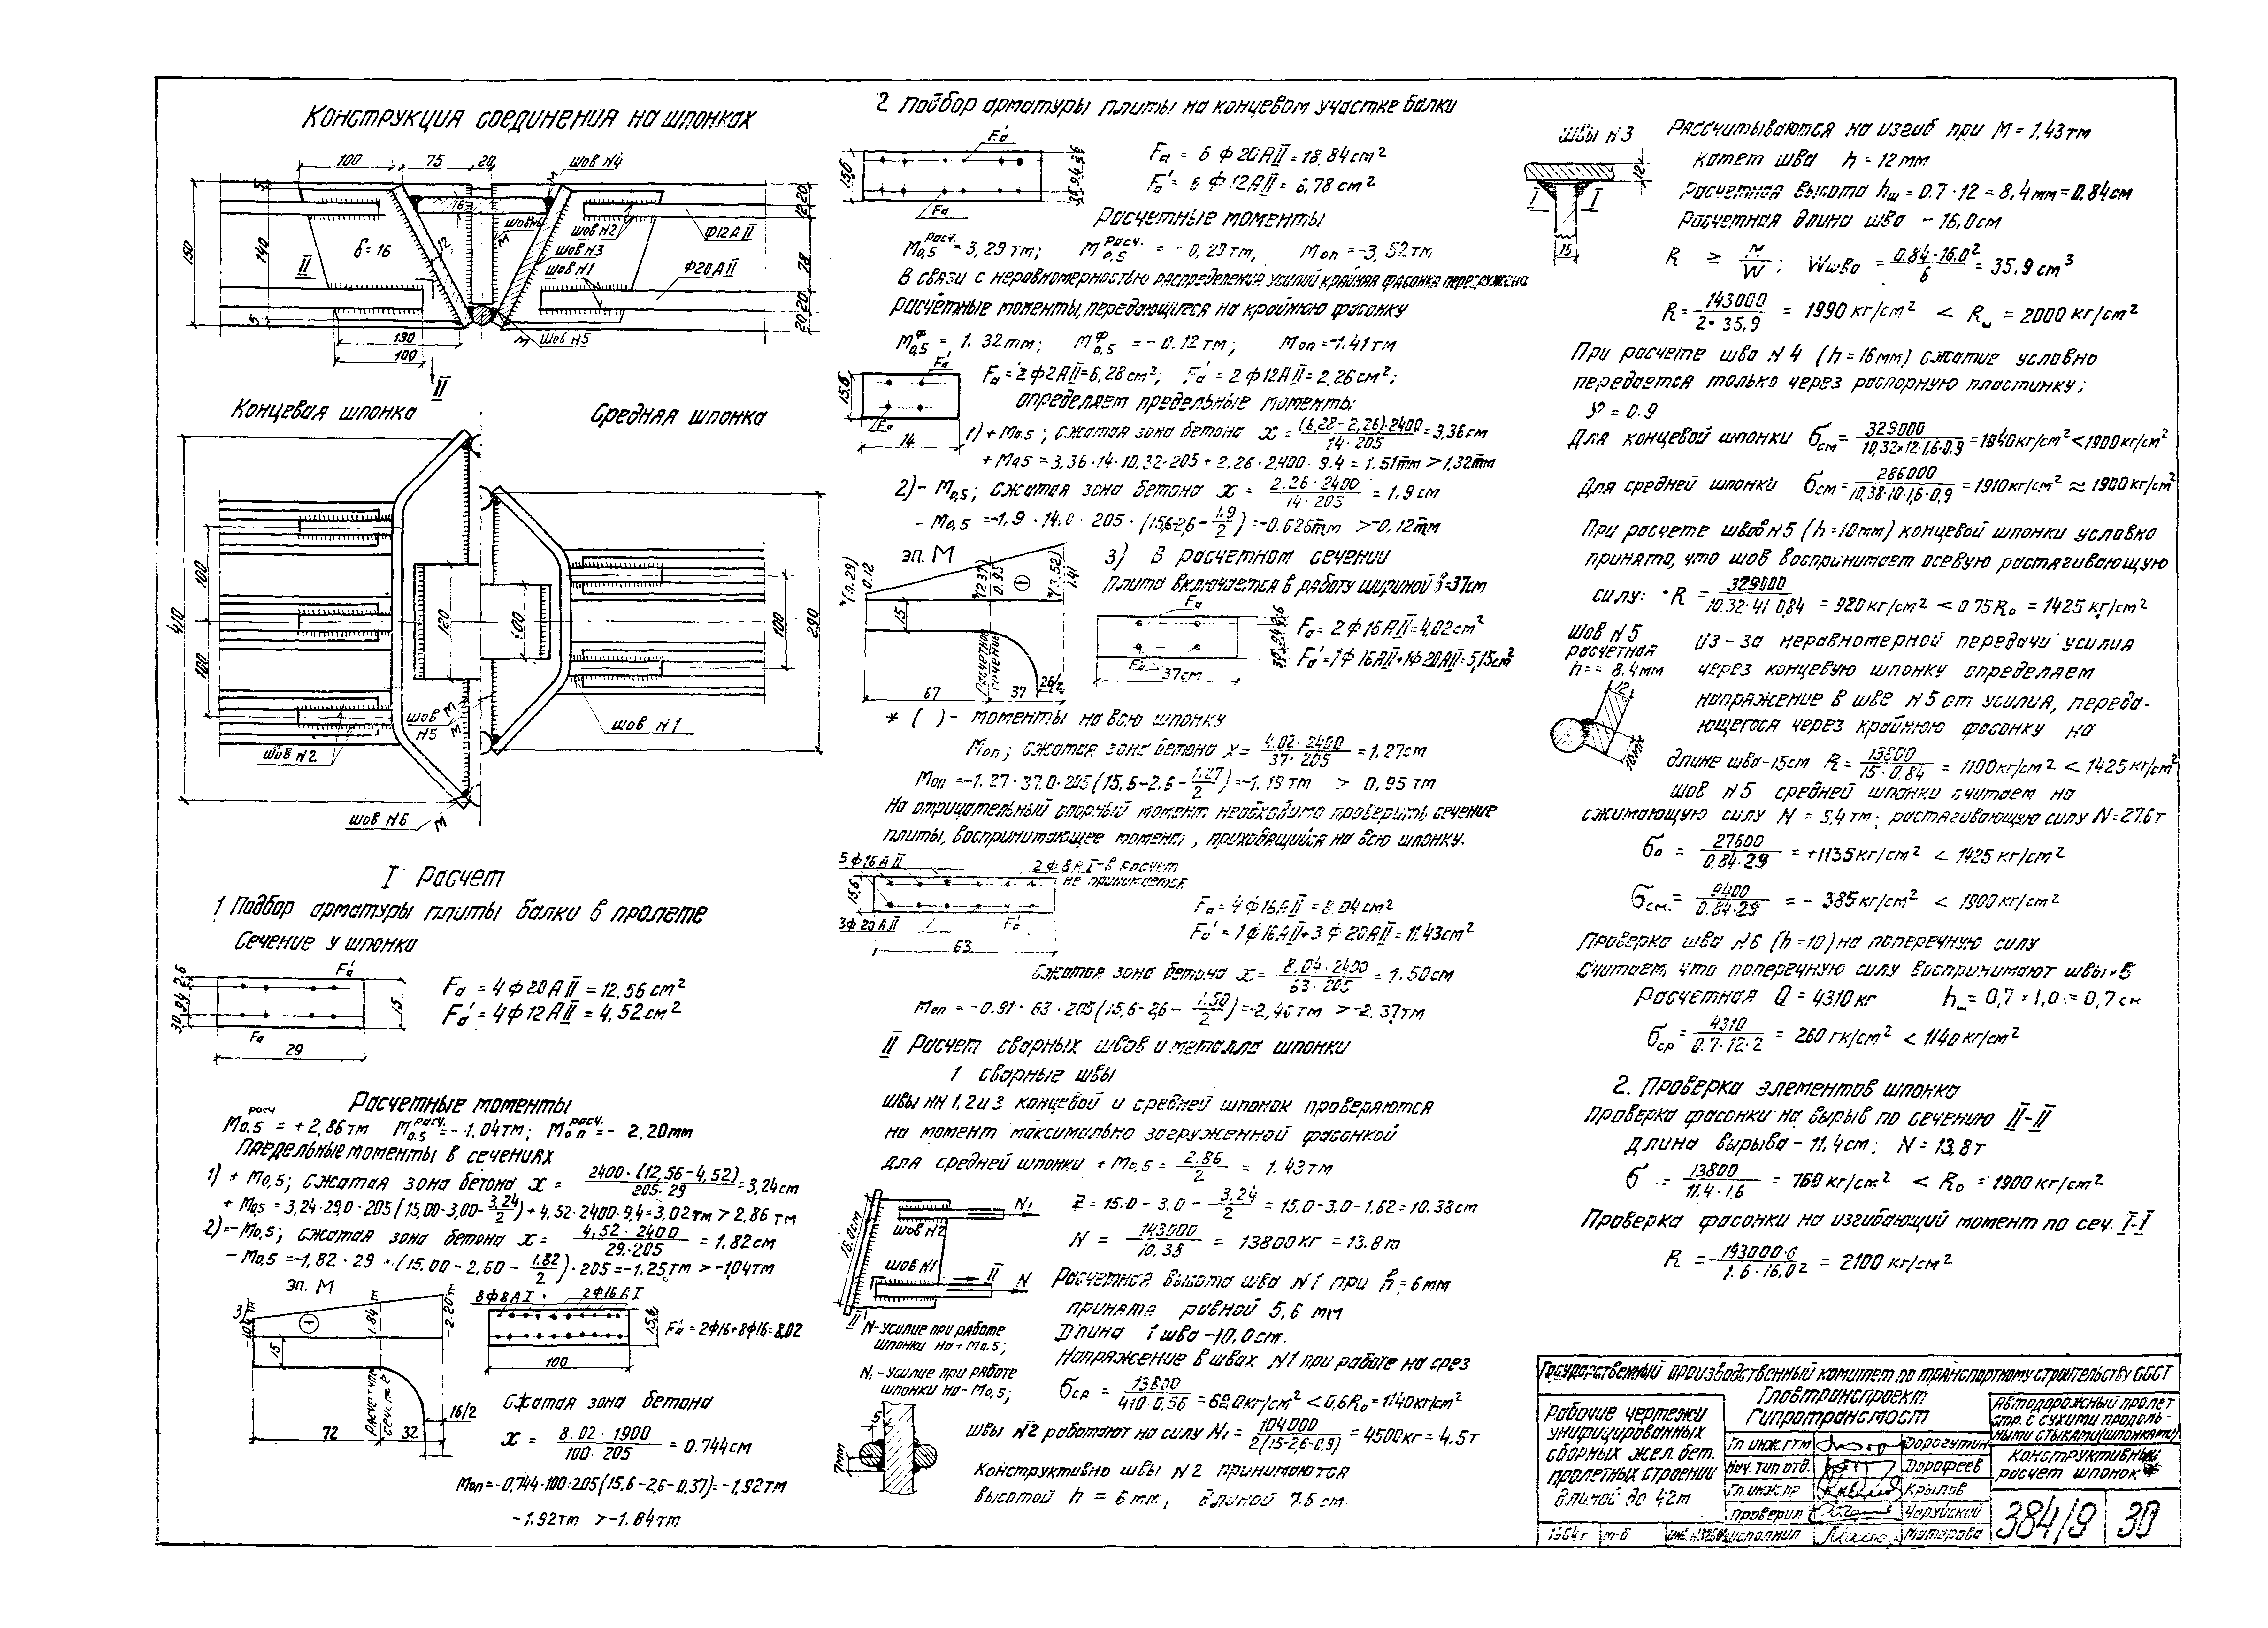 Конструкция соединения на шпонках
100 75 20 шов N4
5 16 20
150 140 δ=16 12 шов N2 Ф12АII
II шов N3
шов N1 Ф20АII 78
5 190 шов N5 20 20
100
II
Концевая шпонка Средняя шпонка
410 100 100 120 100 100 290
шов N5
шов N1
шов N2
шов N6
I Расчет
1 Подбор арматуры плиты балки в пролете
Сечение у шпонки
Fa = 4ф20АII = 12,56 см²
Fa' = 4ф12АII = 4,52 см²
3,0 9,4 2,6 Fa' Fa 15
29
Расчетные моменты
M0.5 расч = +2,86тм M0.5 расч. = -1,04тм; Mоп расч. = - 2,20тм
Предельные моменты в сечениях
1) + M0,5; сжатая зона бетона x = 2400·(12,56-4,52) / 205·29 = 3,24см
+ M0,5 = 3,24·29,0·205(15,00-3,00-3,24/2)+4,52·2400·9,4=3,02тм > 2,86 тм
2)=-M0,5; сжатая зона бетона x = 4,52·2400 / 29·205 = 1.82см
- M0,5 =-1,82·29·(15,00-2,60-1,82/2)·205=-1.25тм > -1,04тм
эп. М
1 1.84 -2.20 15 72 32 16/2
8ф8АI 2ф16АI
15,6 Fa' = 2ф16+8ф16=8,02
100
Сжатая зона бетона
x = 8.02·1900 / 100·205 = 0.744см
Mоп=-0,744·100·205(15,6-2,6-0,37)=-1,92тм
-1.92тм > -1.84тм
2 Подбор арматуры плиты на концевом участке балки
Fa = 6 ф 20АII = 18,84см²
Fa' = 6 ф 12АII = 6,78 см²
Расчетные моменты
M0,5 расч. = 3,29 тм; M0,5 расч. = - 0,29тм, Mоп = -3,52тм
В связи с неравномерностью распределения усилий крайняя фасонка перегружена
расчетные моменты, передающиеся на крайнюю фасонку
M0,5 ф = 1.32тм; M0,5 ф = - 0.12тм; Mоп = -1.41тм
Fa = 2ф2АII=6,28см²; Fa' = 2ф12АII=2,26см²;
определяем предельные моменты
15,6 Fa' Fa 14
1) + M0.5; сжатая зона бетона x = (6,28-2,26)·2400 / 14·205 = 3,36см
+ M0,5 = 3,36·14·10,32·205+2,26·2400·9.4=1.51тм > 1,32тм
2)- M0,5; сжатая зона бетона x = 2.26·2400 / 14·205 = 1.9см
- M0,5 =-1,9·14.0·205·(15,6-2,6-1,9/2)=-0.626тм >-0,12тм
эп. М
*(0.29) 0.12 *(2.37) 0.95 1 *(3.52) 1.41
15 Расчетное сечение 67 37 26/2
3) В расчетном сечении
плита включается в работу шириной b=37см
Fa = 2ф16АII=4,02см²
Fa' = 1ф16АII+1ф20АII=5,15см²
37см
* ( ) - моменты на всю шпонку
Mоп; сжатая зона бетона x = 4.02·2400 / 37·205 = 1,27см
Mоп =-1,27·37.0·205(15,6-2,6-1,27/2)=-1.19тм > 0,95тм
На отрицательный опорный момент необходимо проверить сечение
плиты, воспринимающее момент, приходящийся на всю шпонку.
5ф16АII 2ф8АI-в расчет
не принимается
15,6 3ф20АII Fa' 63
Fa = 4ф16АII = 8.04см²
Fa' = 1ф16АII+3ф20АII=11.43см²
Сжатая зона бетона x = 8,04·2400 / 63·205 = 1.50см
Mоп = -0.91·63·205(15,6-2,6-1,50/2)=-2,46тм >-2.37тм
II Расчет сварных швов и металла шпонки
1 Сварные швы
Швы NN 1,2 и 3 концевой и средней шпонок проверяются
на момент максимально загруженной фасонкой
для средней шпонки + M0,5 = 2.86 / 2 = 1.43тм
16.0см шов N2 N1 шов N1 II N II
Z = 15.0-3.0-3,24/2 = 15.0-3.0-1,62=10.38см
N = 143000 / 10,38 = 13800кг = 13.8т
Расчетная высота шва N1 при h=6мм
принята равной 5,6 мм
Длина 1 шва-10,0см.
N-усилие при работе
шпонки на+M0.5;
N1-усилие при работе
шпонки на-M0,5;
Напряжение в швах N1 при работе на срез
σср = 13800 / 4·10·0,56 = 620кг/см² < 0,6R0=1140кг/см²
5 7мм
швы N2 работают на силу N1 = 104000 / 2(15-2,6-0,9) = 4500кг=4.5т
Конструктивно швы N2 принимаются
высотой h = 6мм, длиной 7.5см.
швы N3 Рассчитываются на изгиб при М = 1.43тм
катет шва h = 12мм
Расчетная высота hш = 0.7·12 = 8,4мм=0.84см
Расчетная длина шва - 16.0см
I I 12 16
R ≥ M / W; Wшва = 0.84·16.0² / 6 = 35.9см³
R = 143000 / 2·35,9 = 1990кг/см² < Rш = 2000кг/см²
При расчете шва N4 (h=16мм) сжатие условно
передается только через распорную пластинку;
φ = 0.9
Для концевой шпонки σсм = 329000 / 10,32·12·1,6·0.9 = 1840кг/см²<1900кг/см²
Для средней шпонки σсм = 286000 / 10,38·10·1,6·0,9 = 1910кг/см² ≈ 1900кг/см²
При расчете швов N5 (h=10мм) концевой шпонки условно
принято, что шов воспринимает осевую растягивающую
силу: R = 329000 / 10.32·41·0,84 = 920кг/см² < 0.75R0 = 1425кг/см²
Шов N5
расчетная
h = 8.4мм
Из-за неравномерной передачи усилия
через концевую шпонку определяем
напряжение в шве N5 от усилия, переда-
ющегося через крайнюю фасонку на
длине шва-15см R = 13800 / 15·0.84 = 1100кг/см² < 1425кг/см²
шов N5 средней шпонки считаем на
сжимающую силу N = 9,4тм; растягивающую силу N=27.6т
σ0 = 27600 / 0,84·29 = +1135кг/см² < 1425кг/см²
σсм. = 9400 / 0.84·29 = - 385кг/см² < 1900кг/см²
Проверка шва N6 (h=10) на поперечную силу
Считаем, что поперечную силу воспринимают швы N6
Расчетная Q = 4310кг hш = 0,7×1,0 = 0,7см
σср = 4310 / 0.7·12·2 = 260гк/см² < 1140кг/см²
2. Проверка элементов шпонка
Проверка фасонки на вырыв по сечению II-II
Длина вырыва-11,4см; N = 13,8т
σ = 13800 / 11.4·1,6 = 760кг/см² < R0 = 1900кг/см²
Проверка фасонки на изгибающий момент по сеч. I-I
R = 143000·6 / 1.6·16.0² = 2100кг/см²
Государственный производственный комитет по транспортному строительству СССР
Главтранспроект
Гипротрансмост
Рабочие чертежи
унифицированных
сборных жел.бет.
пролетных строений
длиной до 42м
Автодорожный пролет
стр. с сухими продоль-
ными стыками (шпонками)
Конструктивный
расчет шпонок
Гл инж.ГТМ Дорогутин
Нач. тип отд. Дорофеев
Гл.инж.пр Крылов
Проверил Чаруйский
Исполнил Матарова
1964г м-б
384/9 30